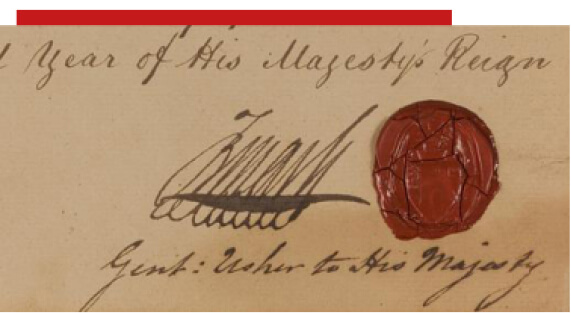 Year of His Majesty's Reign
Gent: Usher to His Majesty